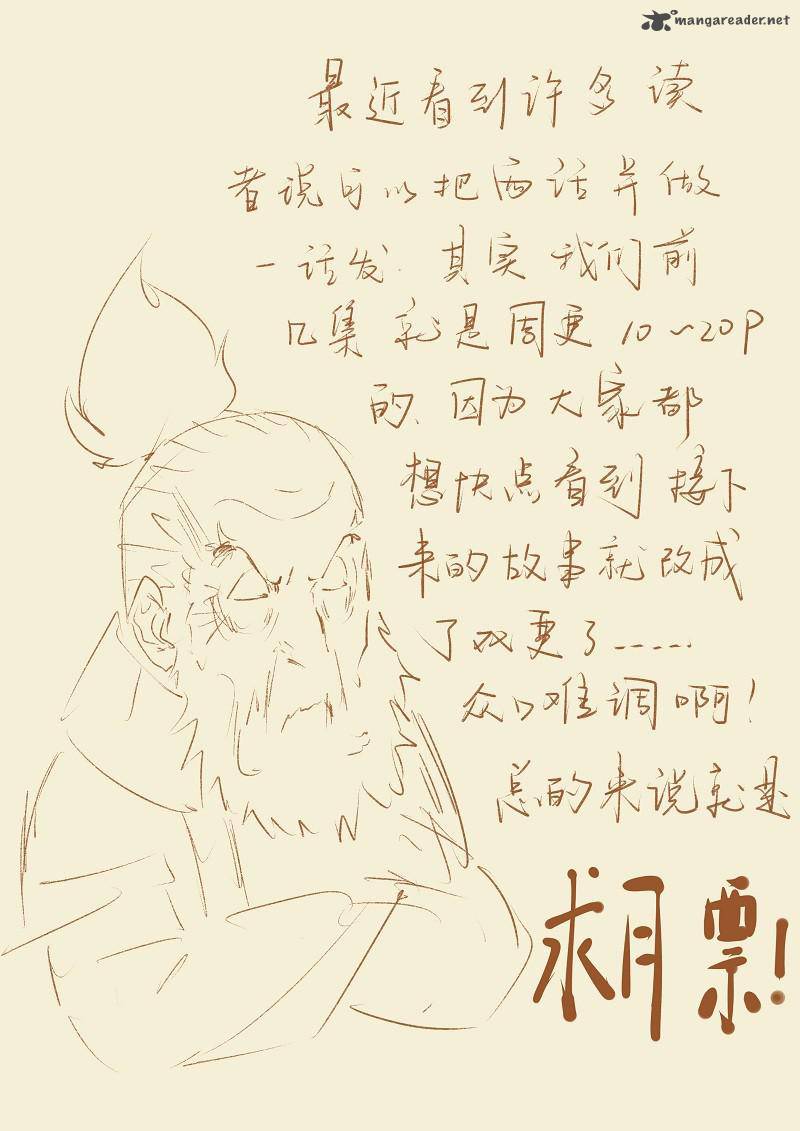 mangareader.net
最近看到许多读
者说可以把两话并做
一话发.其实我们前
几集就是周更10~20P
的、因为大家都
想快点看到接下
来的故事就改成
了双更了……
众口难调啊!
总的来说就是
求月票!